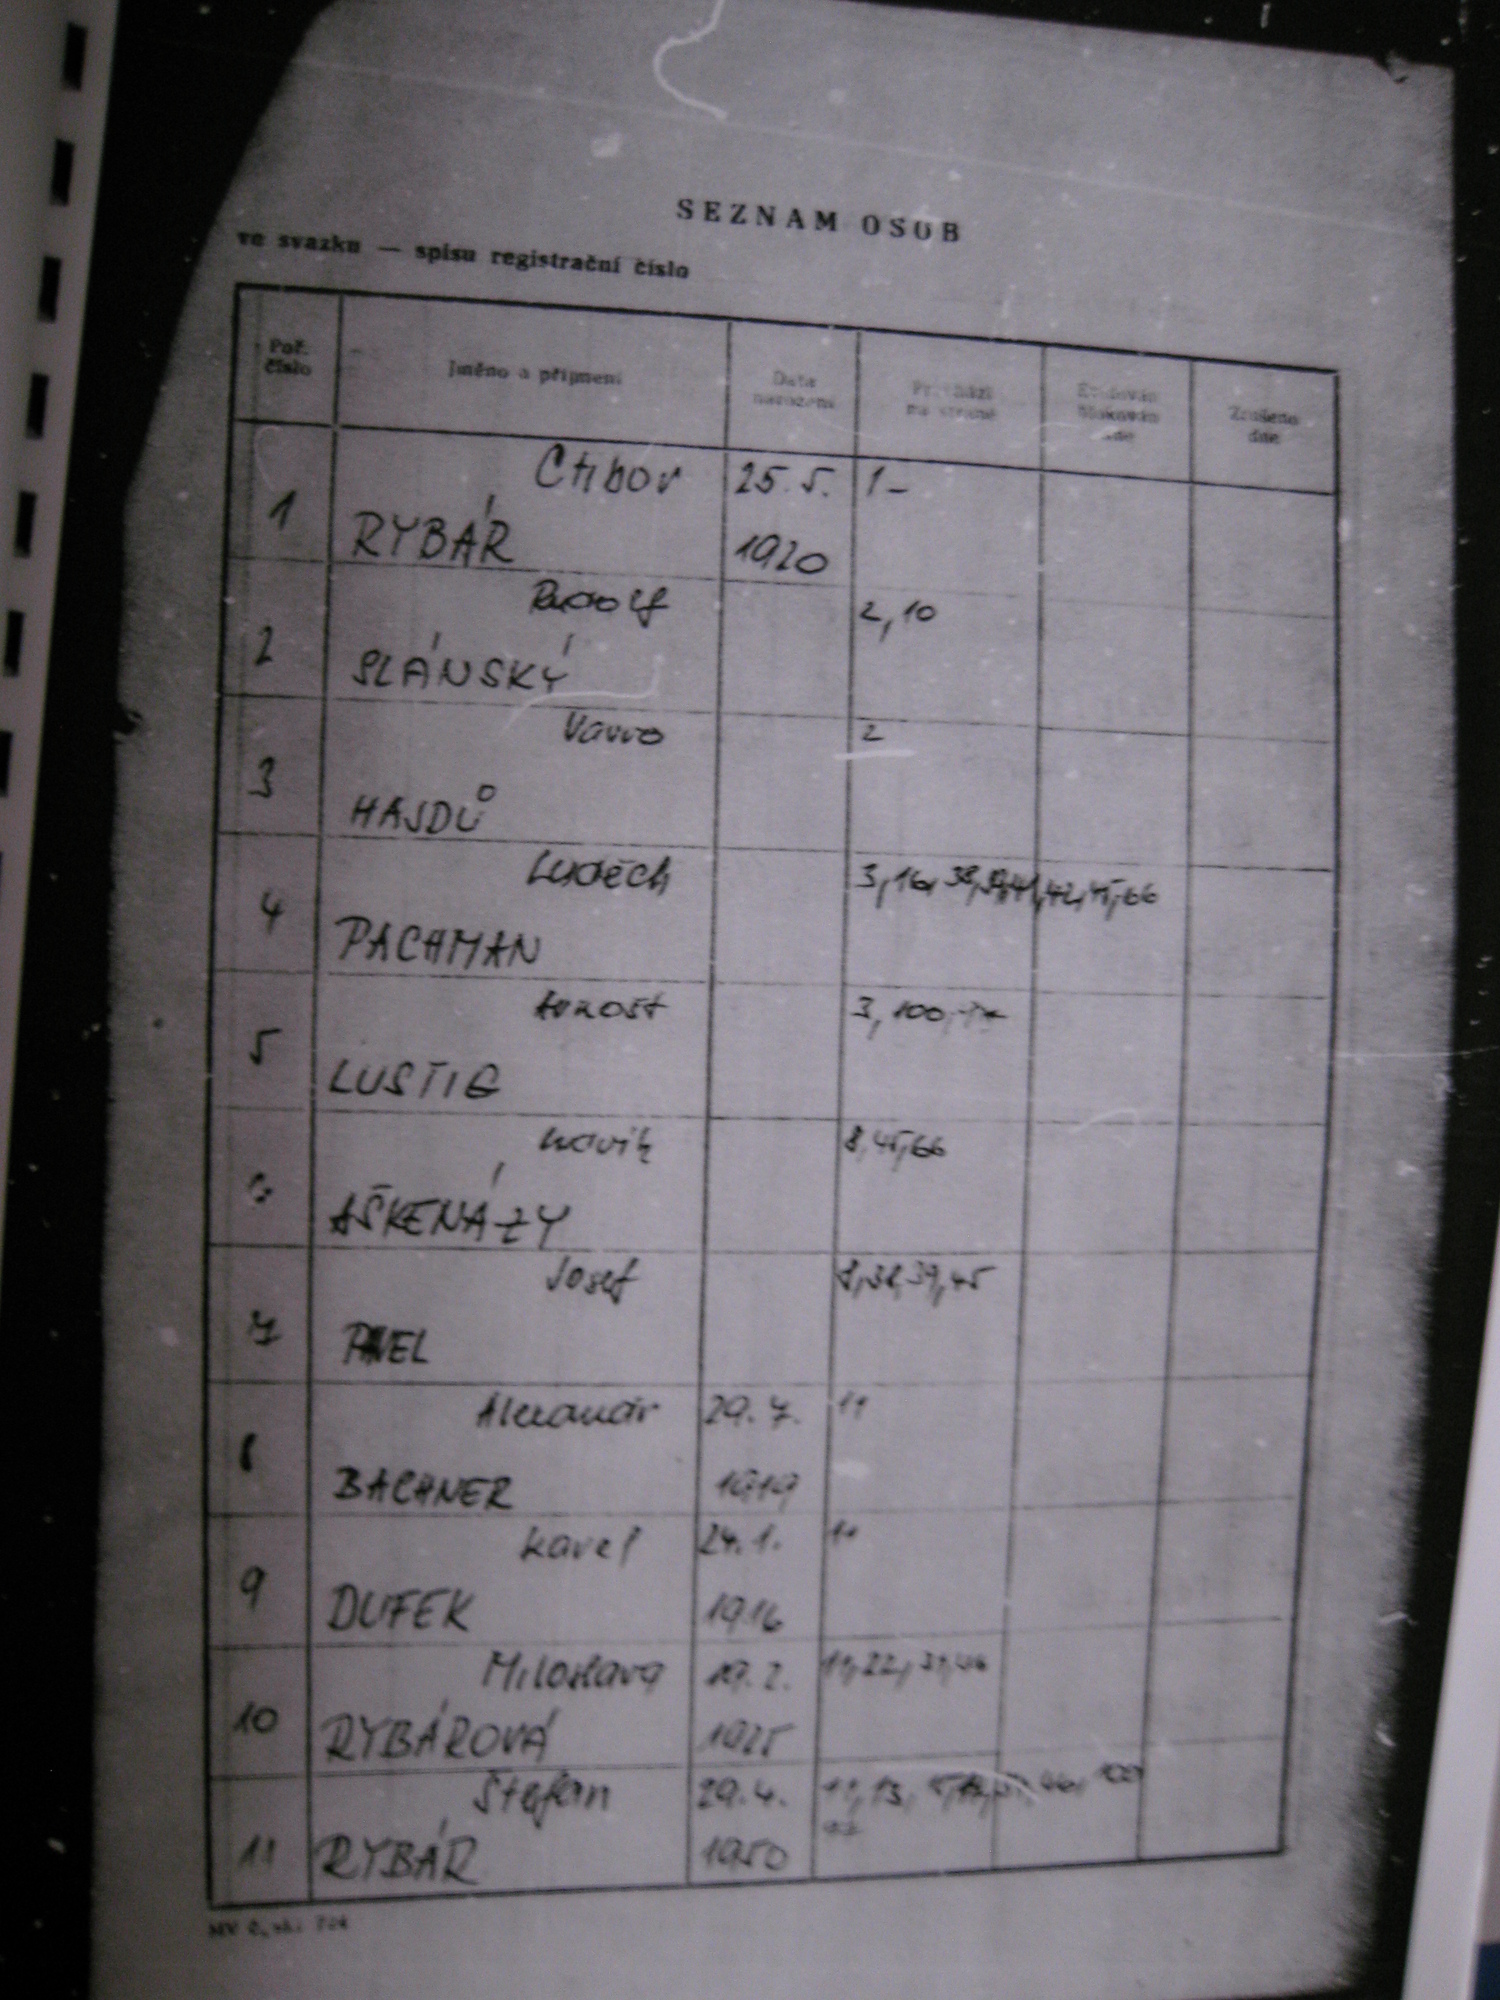 SEZNAM OSOB
ve svazku — spisu registrační číslo
Poř. číslo Jméno a příjmení Data narození Prochází na straně Evidován blokován dne Zrušeno dne
Ctibor 25. 5. 1-
1 RYBÁR 1920
Rudolf 2, 10
2 SLÁNSKÝ
Vavro 2
3 HAJDŮ
Luděch 3, 16, 38, 39, 41, 42, 45, 66
4 PACHMAN
Arnošt 3, 100,
5 LUSTIG
Ludvik 8, 45, 66
AŠKENÁZY
Josef 8, 38, 39, 45
7 PAVEL
Alexandr 29. 7. 11
8 BACHNER 1919
Karel 24. 1.
9 DUFEK 1916
Miloslava 19. 2. 11, 22,
10 RYBÁROVÁ 1925
Štefan 29. 4. 11, 13, 46, 100
11 RYBÁR 1950
MV